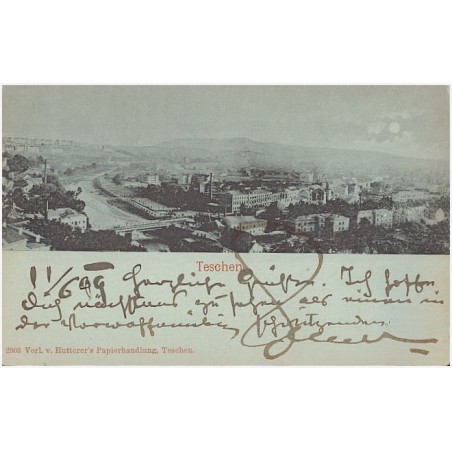 Teschen.
11/6 99 Herzliche Grüße. Ich hoffe
Dich nächstens zu sehen als einen in
der
2908 Verl. v. Hutterer's Papierhandlung, Teschen.